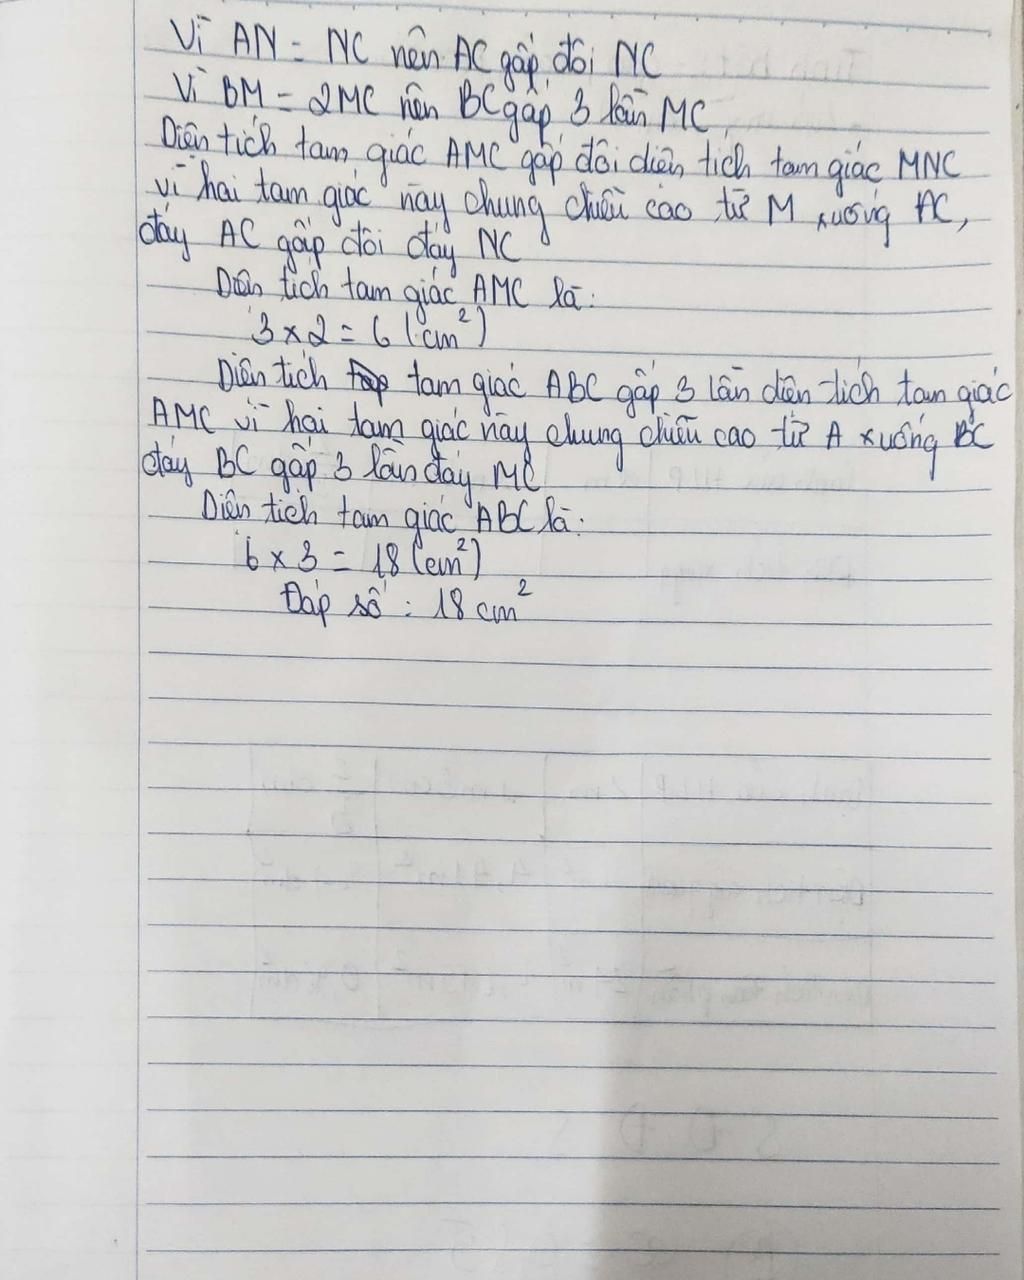 Vì AN = NC nên AC gấp đôi NC
Vì BM = 2MC nên BC gấp 3 lần MC
Diện tích tam giác AMC gấp đôi diện tích tam giác MNC
vì hai tam giác này chung chiều cao từ M xuống AC,
đáy AC gấp đôi đáy NC
Diện tích tam giác AMC là:
3 x 2 = 6 (cm²)
Diện tích tam giác ABC gấp 3 lần diện tích tam giác
AMC vì hai tam giác này chung chiều cao từ A xuống BC
đáy BC gấp 3 lần đáy MC
Diện tích tam giác ABC là:
6 x 3 = 18 (cm²)
Đáp số : 18 cm²